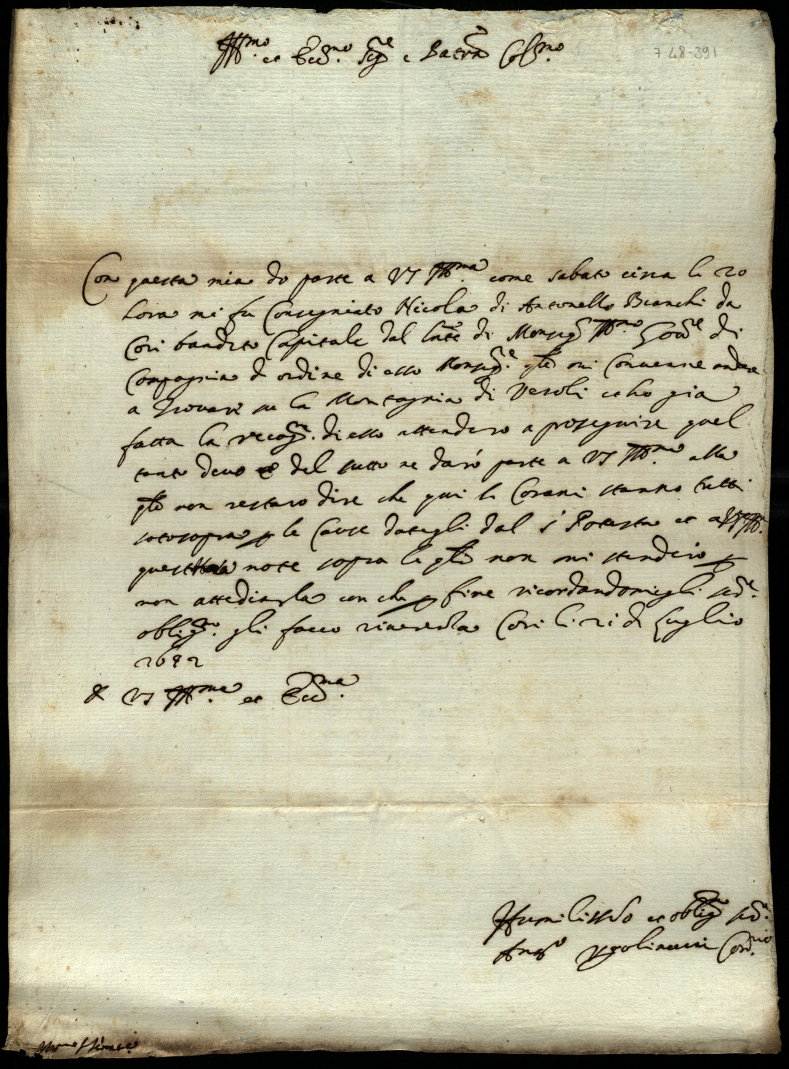 Ill.mo et Ecc.mo Sig.re e Pa͠rõ Col.mo
748-391
Con questa mia do parte a VS Ill.ma come sabato circa le 20
hora mi fu Consegniato Nicola di Antonello Bianchi da
Cori bandito Capitale dal di Monsig.r Ill.mo Gov.re di
Campagnia d ordine di esso Monsig.re q͠le mi Convenne andare
a trovare su la Montagnia di Veroli et ho gia
fatta la recog.ne di esso attendero a proseguire quel
tanto devo et del tutto ne darò parte a VS Ill.ma alla
q͠le non restaro dire che qui li Corani stanno tutti
sotosopra p le Cause dategli dal S Potesta et
questa notte sopra le q͠li non mi stendero p
non attediarla con che p fine ricordandomigli ser.re
oblig.mo gli faccio riverenza Cori li 21 di Luglio
1692
D VS Ill.ma et Ecc.ma
Humilissimo et oblig.mo ser.re
Ang.o Ugolinucci